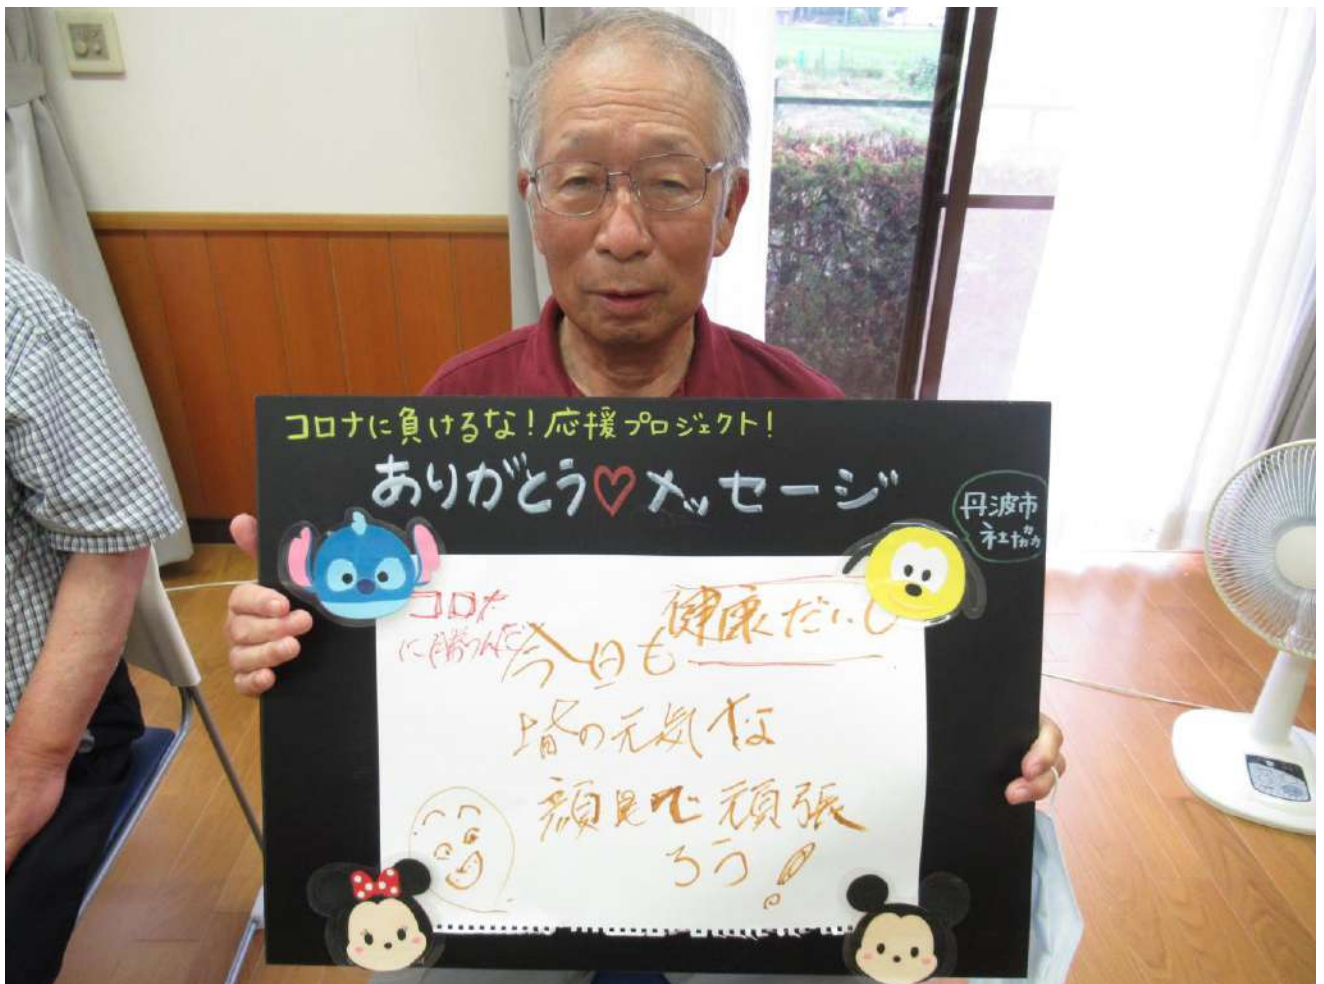 コロナに負けるな!応援プロジェクト!
ありがとう♡メッセージ
丹波市
社協
コロナ
に勝つんだ
健康だいじ
今日も
皆の元気な
顔見て頑張
ろう!